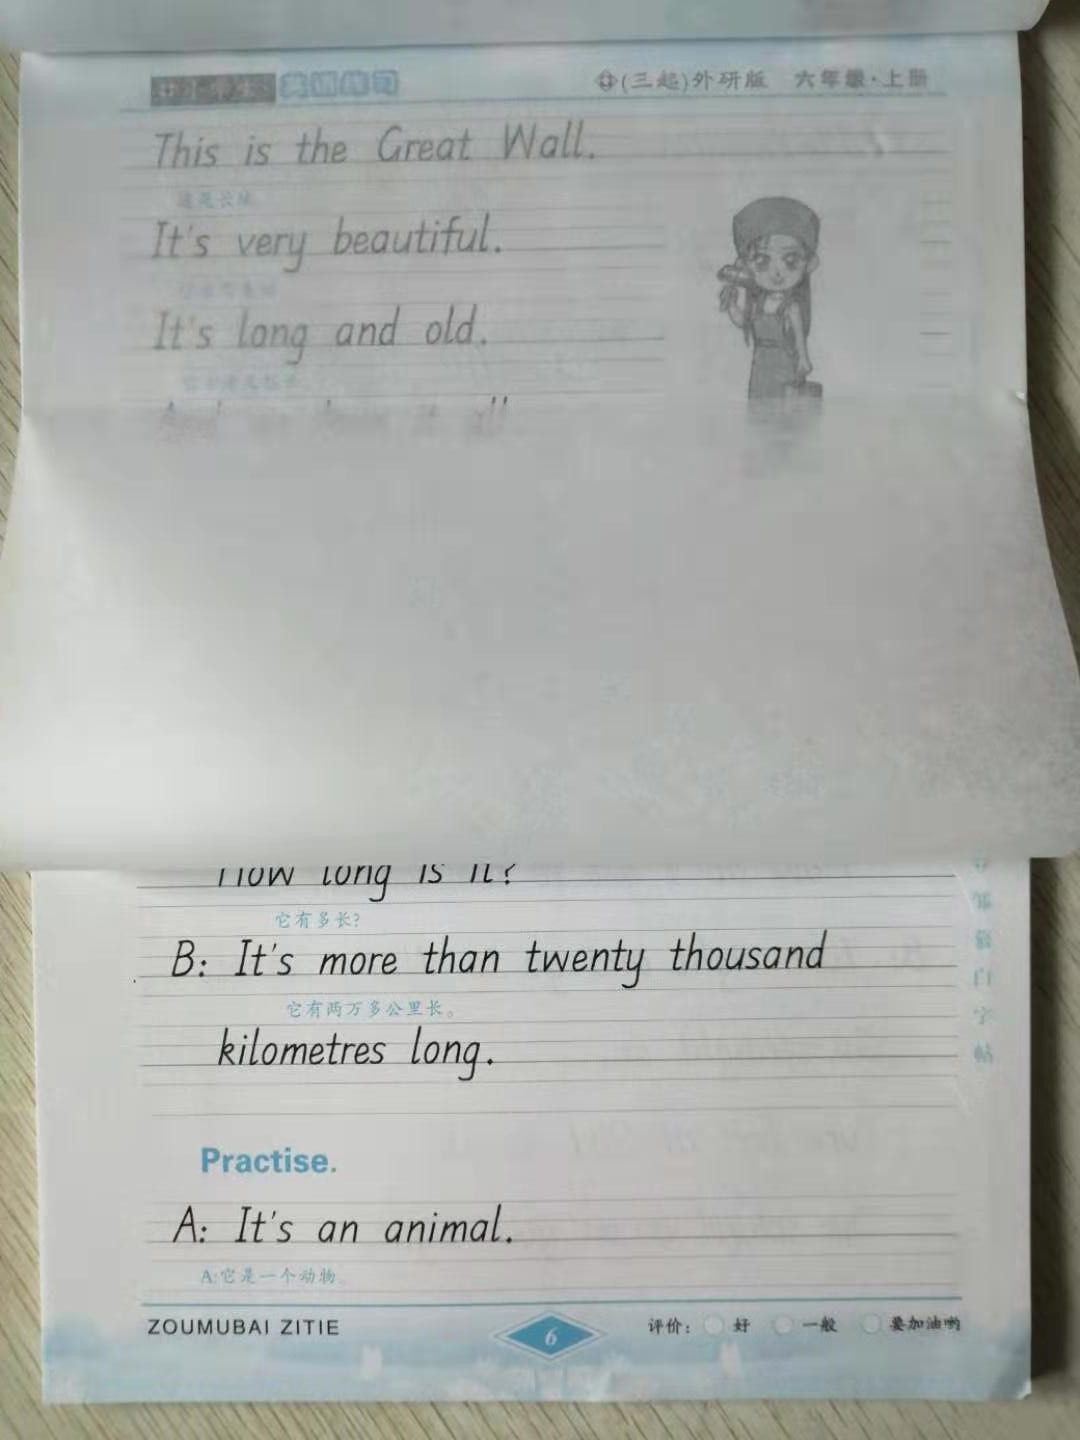 (三起)外研版 六年级·上册
This is the Great Wall.
这是长城
It's very beautiful.
It's long and old.
it all
How long is it?
它有多长?
B: It's more than twenty thousand
它有两万多公里长。
kilometres long.
Practise.
A: It's an animal.
A:它是一个动物。
ZOUMUBAI ZITIE
6
评价: 好 一般 要加油哟